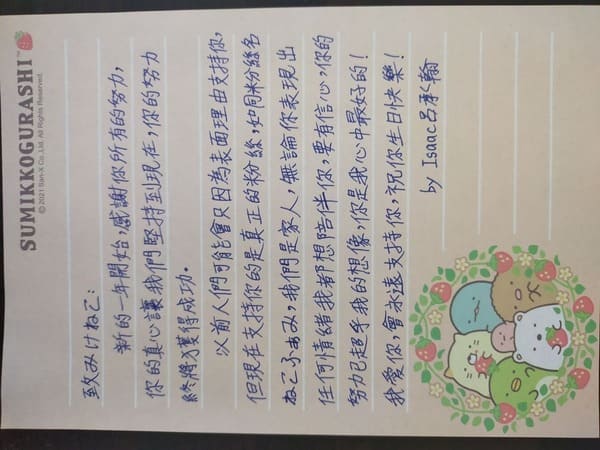 SUMIKKOGURASHI™
©2021 San-X Co.,Ltd. All Rights Reserved.
致みけねこ：
新的一年開始，感謝你所有的努力，
你的真心讓我們堅持到現在，你的努力
終將獲得成功。
以前人們可能會只因為表面理由支持你，
但現在支持你的是真正的粉絲，如同粉絲名
ねこふぁみ，我們是家人，無論你表現出
任何情緒我都想陪伴你，要有信心，你的
努力已超乎我的想像，你是我心中最好的！
我愛你，會永遠支持你，祝你生日快樂！
by Isaac呂承翰